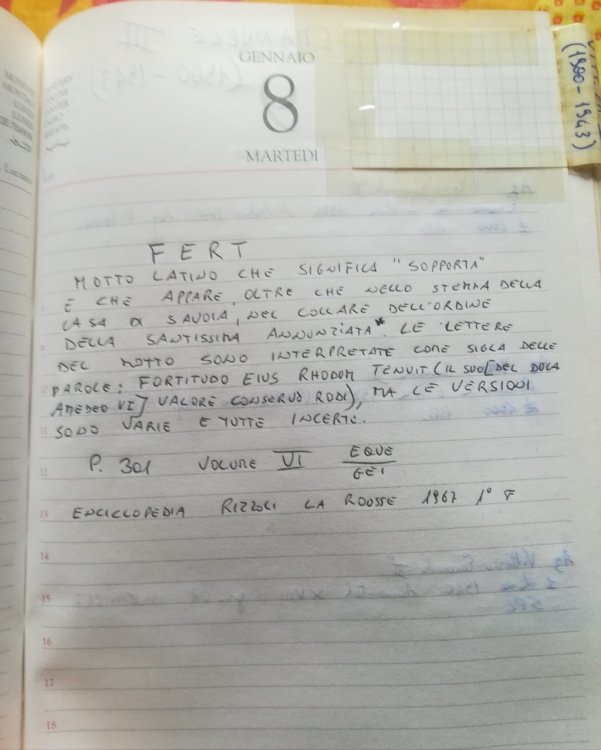 GENNAIO
8
MARTEDI
(1900-1943)
FERT
MOTTO LATINO CHE SIGNIFICA "SOPPORTA"
E CHE APPARE, OLTRE CHE NELLO STEMMA DELLA
CASA DI SAVOIA, NEL COLLARE DELL'ORDINE
DELLA SANTISSIMA ANNUNZIATA* LE LETTERE
DEL MOTTO SONO INTERPRETATE COME SIGLA DELLE
PAROLE: FORTITUDO EIUS RHODUM TENUIT (IL SUO [DEL DUCA
AMEDEO VI] VALORE CONSERVÒ RODI), MA LE VERSIONI
SONO VARIE E TUTTE INCERTE.
P. 301 VOLUME VI EQUE
GEI
ENCICLOPEDIA RIZZOLI LA ROUSSE 1967 1°
12
13
14
15
16
17
18